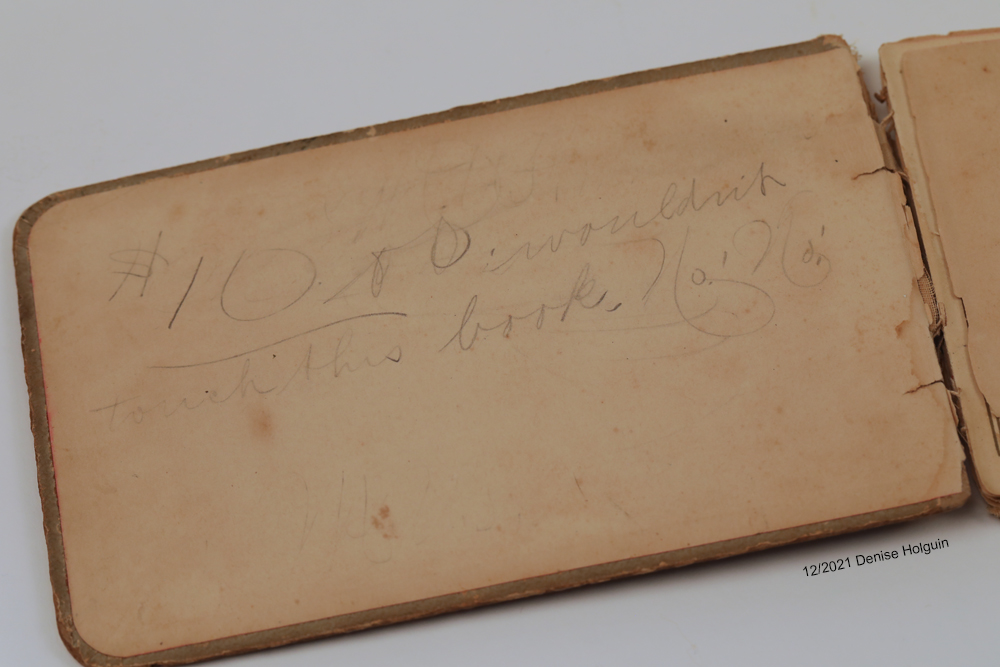 $10. wouldn't
touch this book. No! No!
12/2021 Denise Holguin